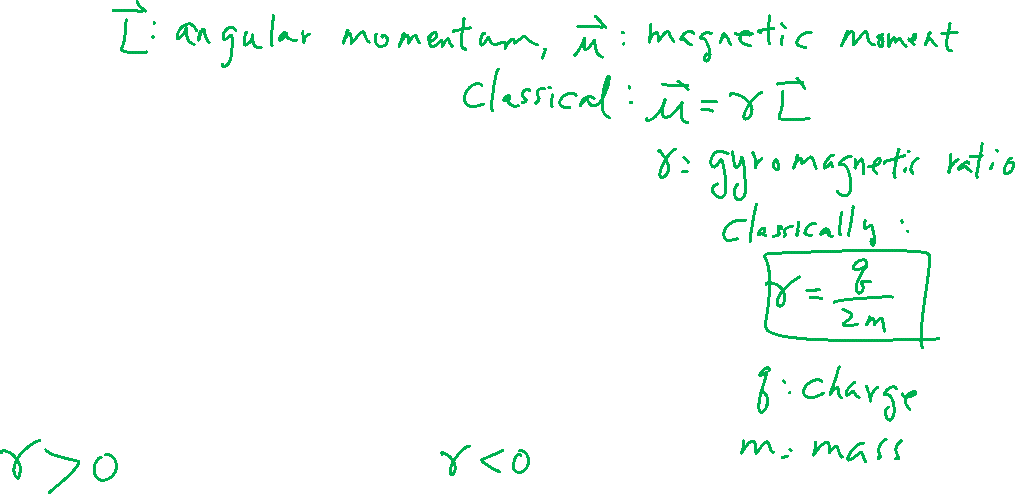 L⃗: angular momentum, μ⃗: magnetic moment
Classical: μ⃗ = γ L⃗
γ: gyromagnetic ratio
Classically:
γ = q / 2m
q: charge
m: mass
γ > 0 γ < 0